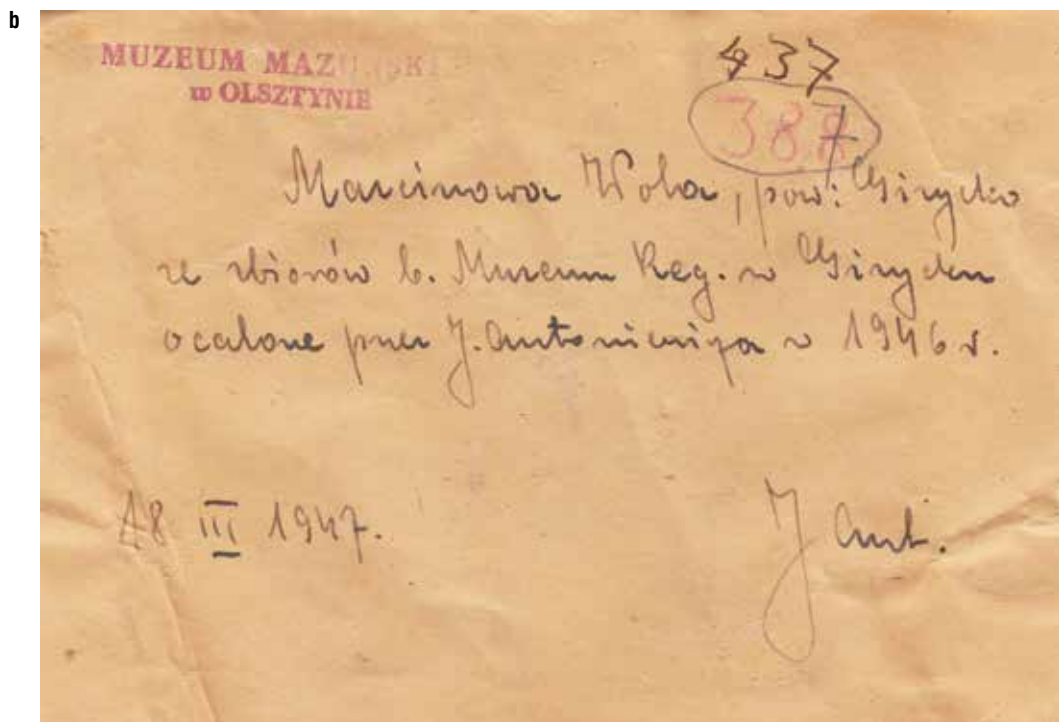 b
MUZEUM MAZURSKIE
w OLSZTYNIE
437
387
Marcinowa Wola, pow: Giżycko
ze zbiorów b. Muzeum Reg. w Giżycku
ocalone przez J. Antoniewicza w 1946 r.
18 III 1947.
J Ant.